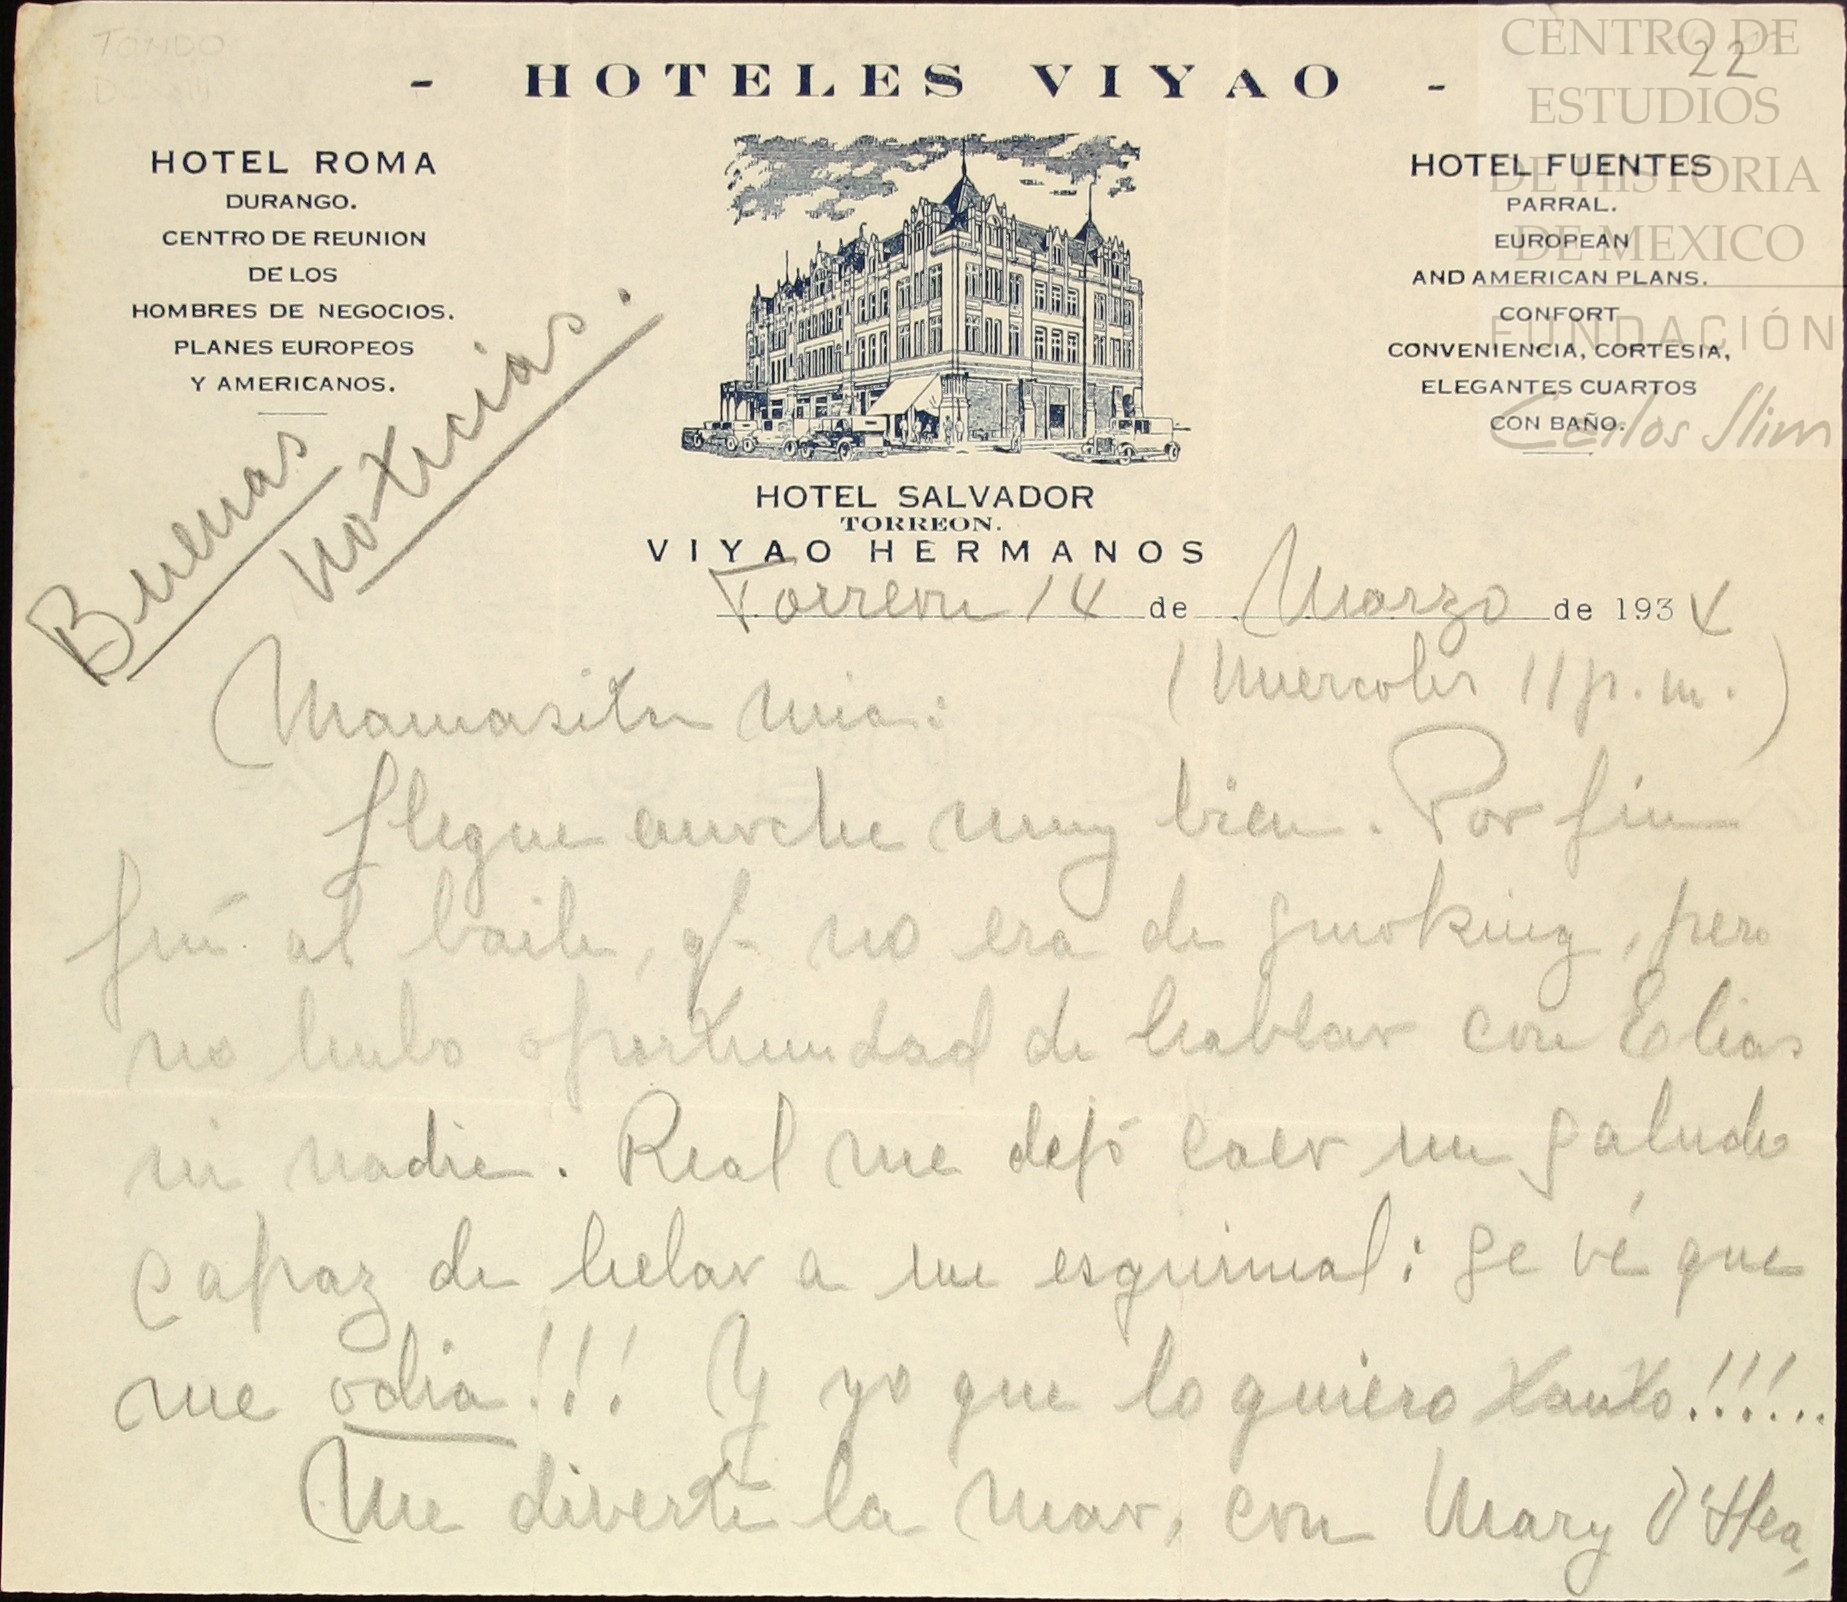 FONDO
DCXXIII
22
- HOTELES VIYAO -
HOTEL ROMA
DURANGO.
CENTRO DE REUNION
DE LOS
HOMBRES DE NEGOCIOS.
PLANES EUROPEOS
Y AMERICANOS.
HOTEL FUENTES
PARRAL.
EUROPEAN
AND AMERICAN PLANS.
CONFORT
CONVENIENCIA, CORTESIA,
ELEGANTES CUARTOS
CON BAÑO.
CENTRO DE
ESTUDIOS
DE HISTORIA
DE MEXICO
FUNDACIÓN
Carlos Slim
HOTEL SALVADOR
TORREON.
VIYAO HERMANOS
Buenas
noticias.
Torreon 14 de Marzo de 1934
(Miercoles 11 p.m.)
Mamasita mia:
Llegue anoche muy bien. Por fin
fuí al baile, q- no era de smoking, pero
no hubo oportunidad de hablar con Elias
ni nadie. Real me dejó caer un saludo
capaz de helar a un esquimal: se vé que
me odia!!! Y yo que lo quiero tanto!!!...
Me divertí la mar, con Mary O'Hea,